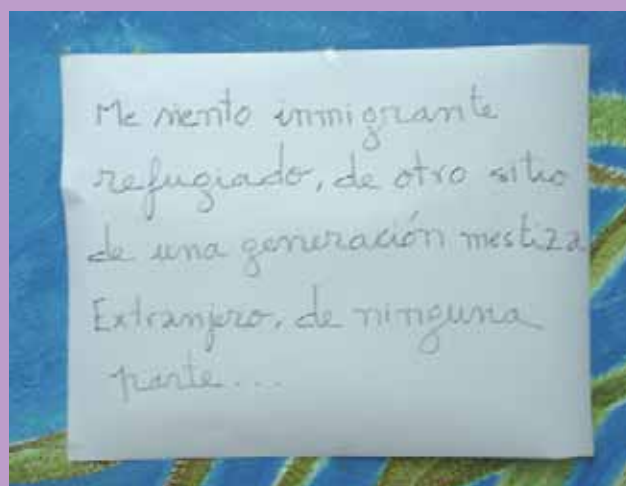 Me siento inmigrante
refugiado, de otro sitio
de una generación mestiza
Extranjero, de ninguna
parte...